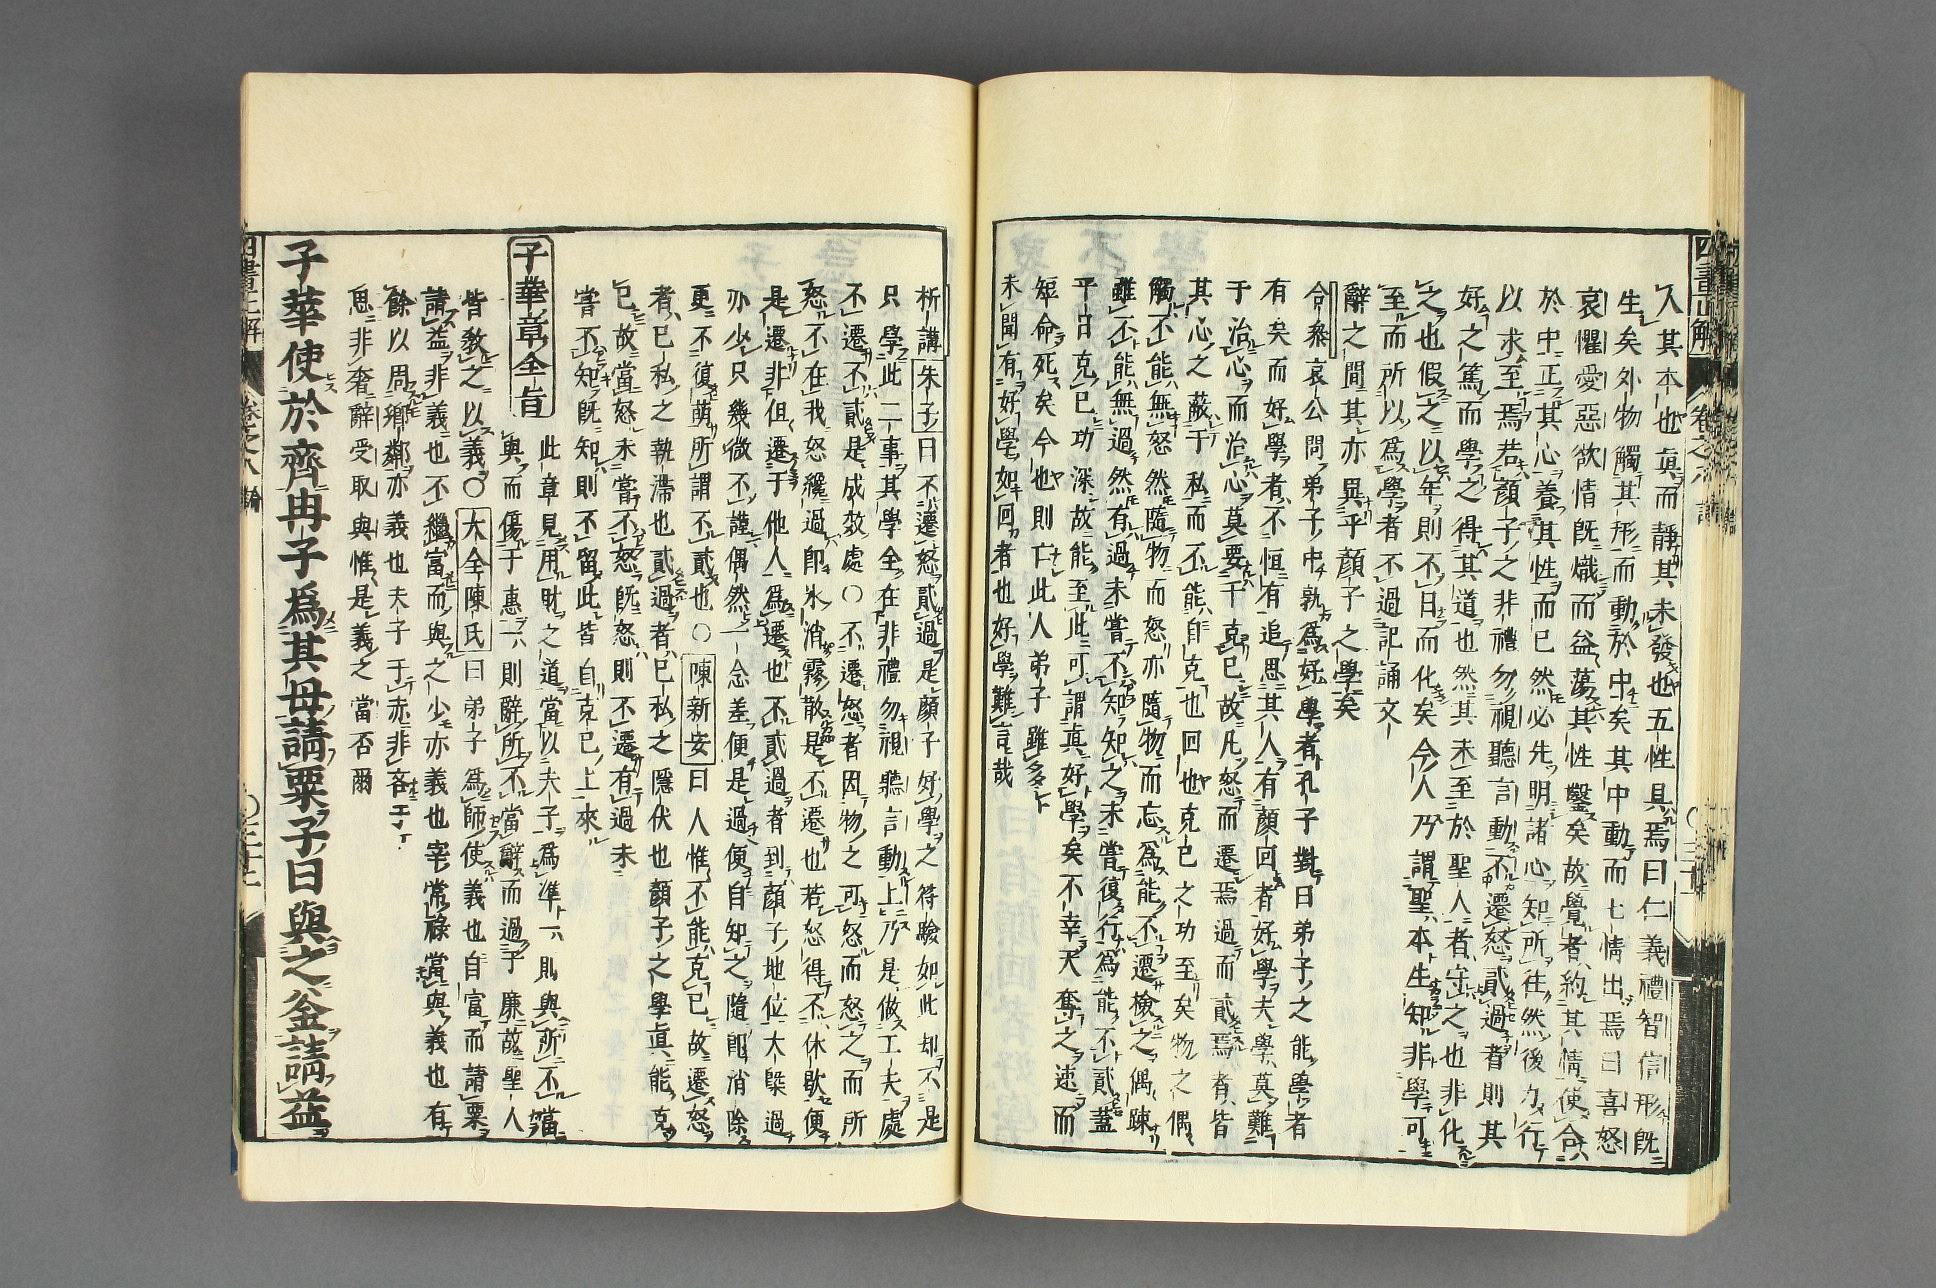 四書正解
卷之八
入其本也眞而靜其未發也五性具焉曰仁義禮智信形旣
生矣外物觸其形而動於中矣其中動而七情出焉曰喜怒
哀懼愛惡欲情旣熾而益蕩其性鑿矣故覺者約其情使合
於中正其心養其性而已然必先明諸心知所徃然後力行
以求至焉若顏子之非禮勿視聽言動不遷怒貳過者則其
好之篤而學之得其道也然其未至於聖人者守之也非化
之也假之以年則不日而化矣今人乃謂聖本生知非學可
至而所以爲學者不過記誦文
辭之間其亦異乎顏子之學矣
合參哀公問弟子中孰爲好學者孔子對曰弟子之能學者
有矣而好學者不恒有追思其人有顏回者好學夫學莫難
于治心而治心莫要于克已故凡怒而遷焉過而貳焉者皆
其心之蔽于私而不能自克也回也克已之功至矣物之偶
觸不能無怒然隨物而怒亦隨物而忘爲能不遷檢之偶踈
雖不能無過然有過未嘗不知知之未嘗復行爲能不貳蓋
平日克已功深故能至此可謂眞好學矣不幸天奪之速而
短命死矣今也則亡此人弟子雖多
未聞有好學如回者也好學難言哉
析講朱子曰不遷怒貳過是顏子好學之符驗如此却不是
只學此二事其學全在非禮勿視聽言動上乃是做工夫處
不遷不貳是成效處○不遷怒者因物之可怒而怒之而所
怒不在我怒纔過卽氷消霧散是不遷也若怒得不休歇便
是遷非但遷于他人爲遷也不貳過者到顏子地位大槩過
亦少只幾微不謹偶然一念差便是過便自知之隨卽消除
更不復萌所謂不貳也○陳新安曰人惟不能克已故遷怒
者已私之執滯也貳過者已私之隱伏也顏子之學眞能克
已故當怒未嘗不怒旣怒則不遷有過未
嘗不知旣知則不留此皆自克已上來
子華章全旨
此章見用財之道當以夫子爲準一則與所不當
與而傷于惠一則辭所不當辭而過于廉故聖人
皆敎之以義○大全陳氏曰弟子爲師使義也自富而請粟
請益非義也不繼富而與之少亦義也宰常祿當與義也有
餘以周鄉鄰亦義也夫子于赤非吝于
思非奢辭受取與惟是義之當否爾
子華使於齊冉子爲其母請粟子曰與之釜請益
四書正解
卷之八